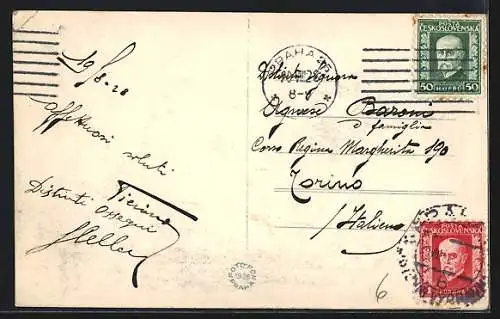 19/8-28
Affettuosi saluti
Tiziana
Distinti Ossequi
Heller
PRAHA
8-
POŠTA
ČESKOSLOVENSKÁ
50 50
Baroni
e famiglia
Corso Regina Margherita 190
Torino
/Italien/
POŠTA
ČESKOSLOVENSKÁ
FOTOFON
1928
PRAHA
6